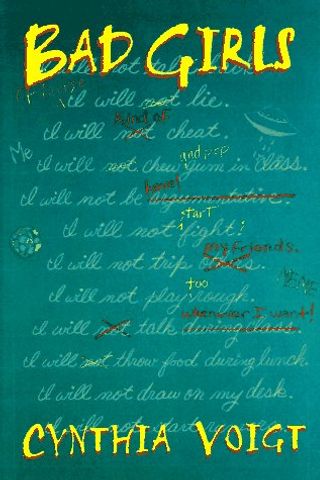 BAD GIRLS
I will not talk back.
I will not lie.
kind of
I will not cheat.
Me
and pop
I will not chew gum in class.
have!
I will not be
start
I will not fight!
my friends.
I will not trip
too
I will not play rough.
whenever I want!
I will not talk
I will not throw food during lunch.
I will not draw on my desk.
I will not start
CYNTHIA VOIGT